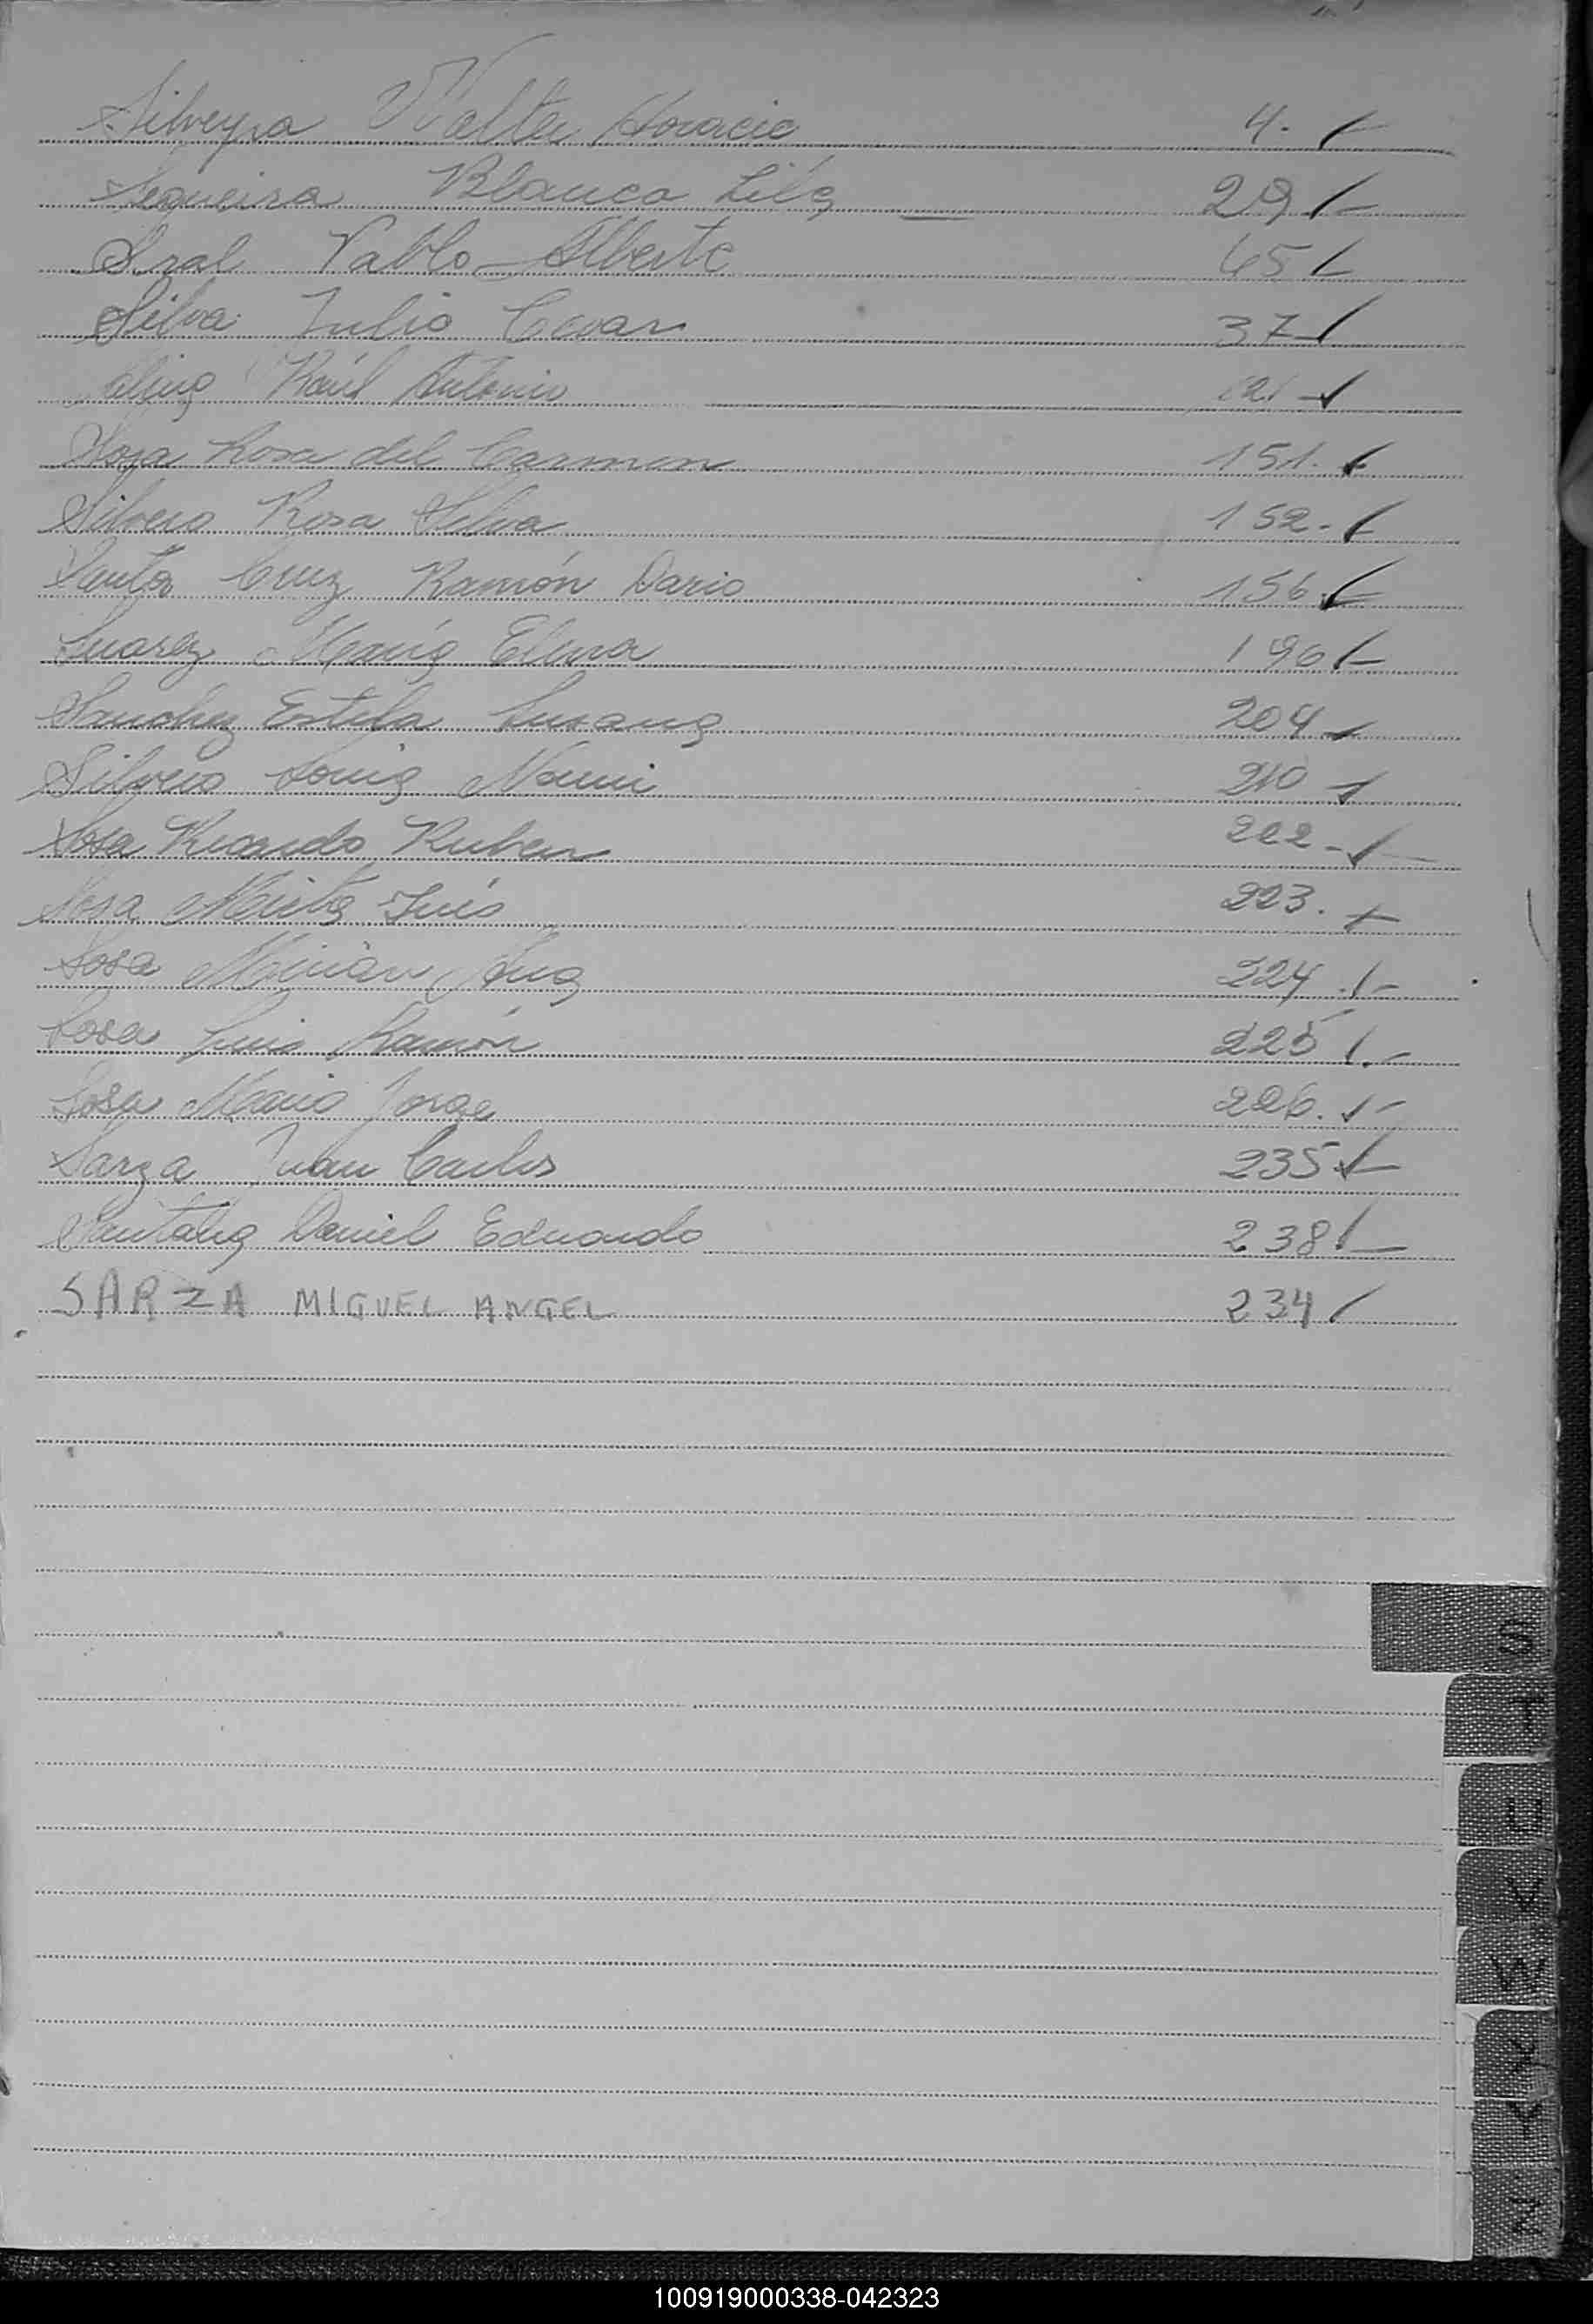 Silveyra Walter Horacio 4. ✓
Sequeira Blanca Lilia 29 ✓
Sral Pablo Alberto 65 ✓
Silva Julio Cesar 37 ✓
Raúl Antonio 121 ✓
Sosa Rosa del Carmen 151. ✓
Silvero Rosa Silva 152- ✓
Santa Cruz Ramón Dario 156. ✓
Suarez María Elena 196 ✓
Sanchez Estela Susana 204 ✓
Silvero Sonia Noemi 210 ✓
Sosa Ricardo Ruben 222- ✓
Sosa Mirta Inés 223. ✓
Sosa Mirian Ana 224 ✓
Sosa Luis Ramón 225 ✓
Sosa Mario Jorge 226. ✓
Sarza Juan Carlos 235 ✓
Santalia Daniel Eduardo 238 ✓
SARZA MIGUEL ANGEL 234 ✓
S
T
U
V
W
X
Y
Z
100919000338-042323